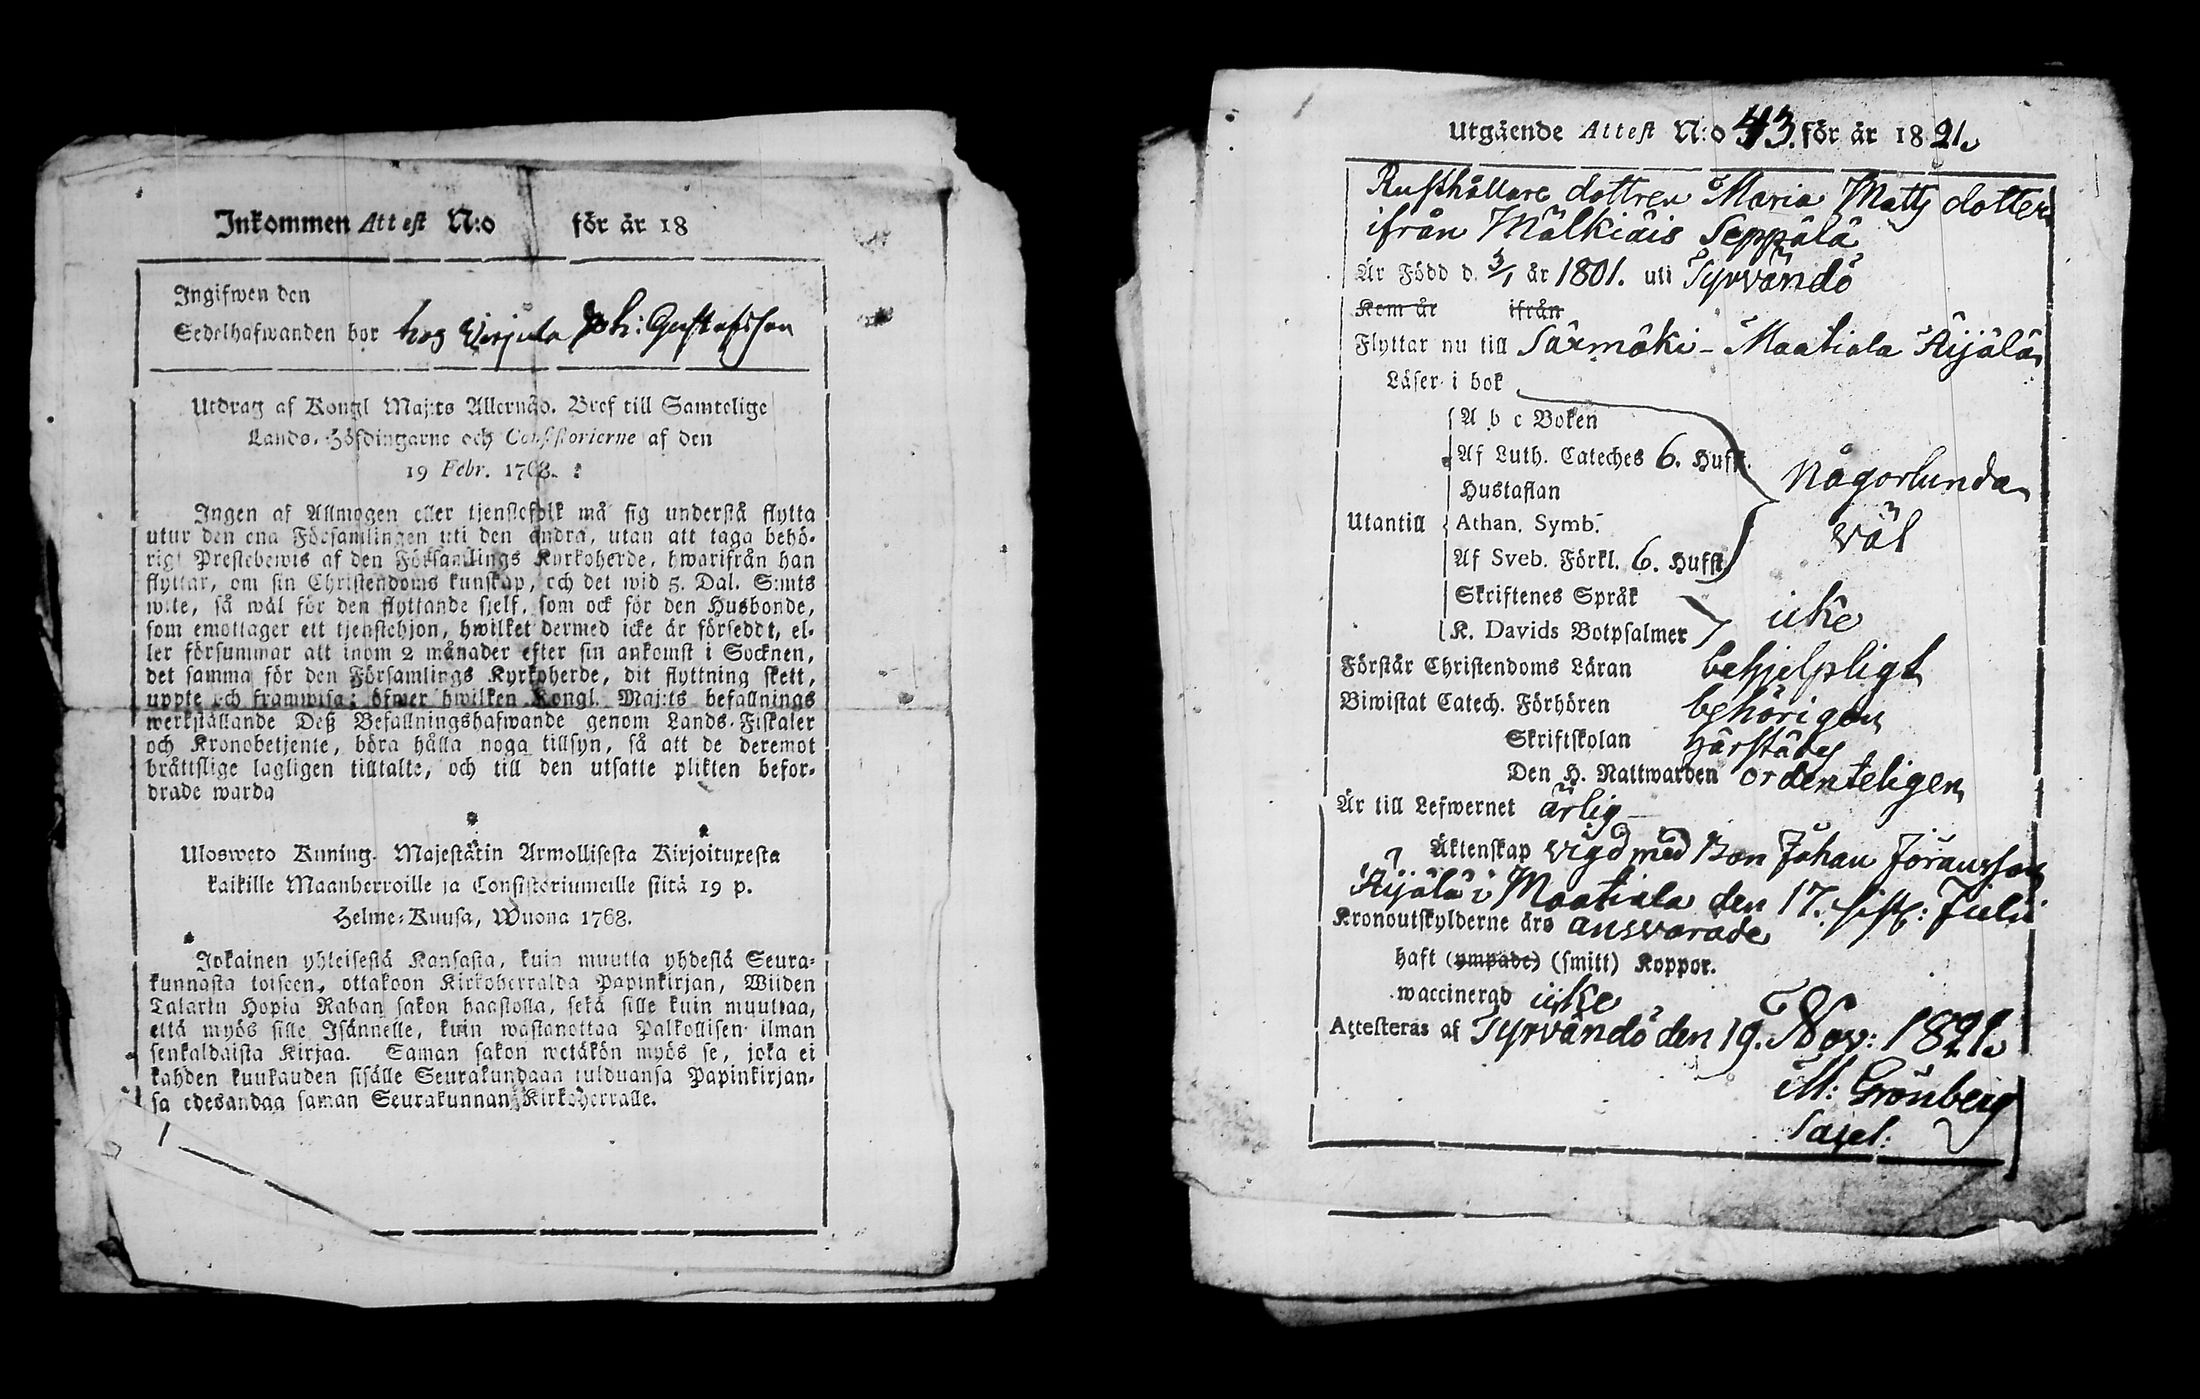 Inkommen Attest N:o för år 18
Ingifwen den
Sedelhafwanden bor hos Virjula Joh: Gustafsson
Utdrag af Kongl Maj:ts Allernåd. Bref till Samtelige
Lands-Höfdingarne och Consistorierne af den
19 Febr. 1768.
Ingen af Allmogen eller tjenstefolk må sig understå flytta
utur den ena Församlingen uti den andra, utan att taga behö-
rigt Prestebewis af den Församlings Kyrkoherde, hwarifrån han
flyttar, om sin Christendoms kunskap, och det wid 5. Dal. S:mts
wite, så wäl för den flyttande sjelf, som ock för den Husbonde,
som emottager ett tjenstehjon, hwilket dermed icke är förseddt, el-
ler försummar att inom 2 månader efter sin ankomst i Socknen,
det samma för den Församlings Kyrkoherde, dit flyttning skett,
uppte och framwisa; öfwer hwilken Kongl. Maj:ts befallnings
werkställande Deß Befallningshafwande genom Lands-Fiskaler
och Kronobetjente, böra hålla noga tillsyn, så att de deremot
bråttslige lagligen tilltalte, och till den utsatte plikten befor-
drade warda
Ulosweto Kuning. Majestätin Armollisesta Kirjoituxesta
kaikille Maanherroille ja Consistoriumeille siitä 19 p.
Helme-Kuusa, Wuona 1768.
Jokainen yhteisestä Kansasta, kuin muutta yhdestä Seura-
kunnasta toiseen, ottakoon Kirkoherralda Papinkirjan, Wiiden
Talarin Hopia Rahan sakon haastolla, sekä sille kuin muuttaa,
että myös sille Isännelle, kuin wastanottaa Palkollisen ilman
senkaldaista Kirjaa. Saman sakon wetäkön myös se, joka ei
kahden kuukauden sisälle Seurakundaan tulduansa Papinkirjan-
sa edesandaa saman Seurakunnan Kirkoherralle.
Utgående Attest N:o 43. för år 1821.
Rusthållare dottren Maria Matts dotter
ifrån Mälkiäis Seppälä
Är Född d. 3/1 år 1801. uti Tyrvändö
Kom år ifrån
Flyttar nu till Särmäki - Maatiala Äijälä
Läser i bok
A b c Boken
Af Luth. Cateches 6. Hufst.
Hustaflan
Någorlunda
Utantill Athan. Symb.
väl
Af Sveb. Förkl. 6. Hufst.
Skriftenes Språk
icke
K. Davids Botpsalmer
Förstår Christendoms Läran behjelpligt
Biwistat Catech. Förhören behörigen
Skriftskolan härstädes
Den H. Nattwarden ordenteligen
Är till Lefwernet ärlig
Äktenskap vigd med Bon Johan Göransson
Äijälä i Maatiala den 17. sistl: Julii
Kronoutskylderne äro ansvarade
haft (ympade) (smitt) Koppor.
waccinerad icke
Attesteras af Tyrvändö den 19. Nov: 1821.
M: Grönberg
Sacel: